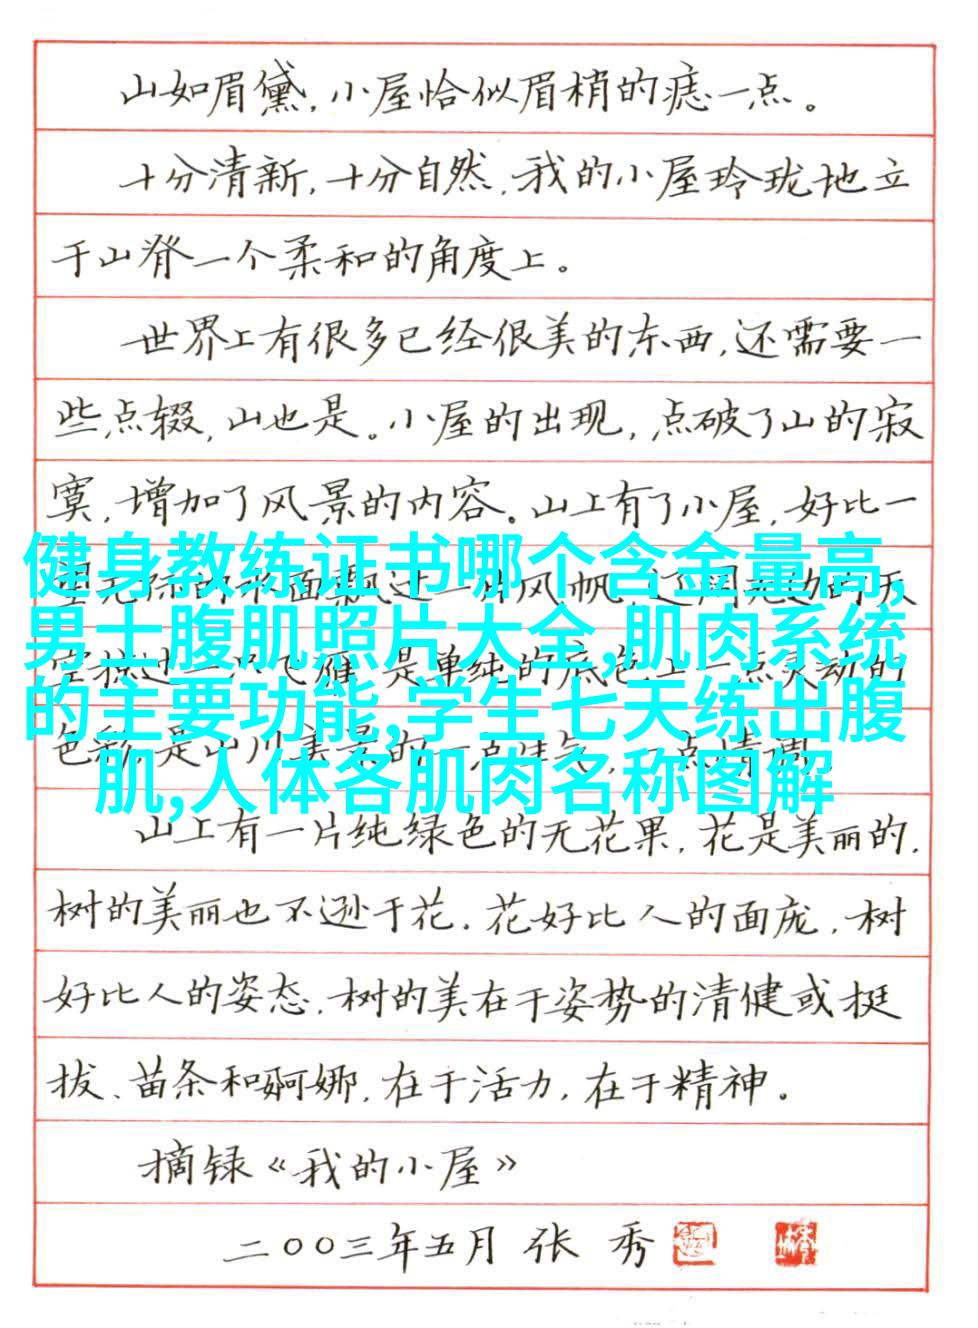 山如眉黛，小屋恰似眉梢的痣一点。
十分清新，十分自然，我的小屋玲珑地立
于山脊一个柔和的角度上。
世界上有很多已经很美的东西，还需要一
些点缀，山也是。小屋的出现，点破了山的寂
寞，增加了风景的内容。山上有了小屋，好比一
健身教练证书哪个含金量高,
男士腹肌照片大全,肌肉系统
的主要功能,学生七天练出腹
肌,人体各肌肉名称图解
山上有一片纯绿色的无花果，花是美丽的，
树的美丽也不逊于花。花好比人的面庞，树
好比人的姿态。树的美在于姿势的清健或挺
拔、苗条和婀娜，在于活力，在于精神。
摘录《我的小屋》
二〇〇三年五月 张 秀